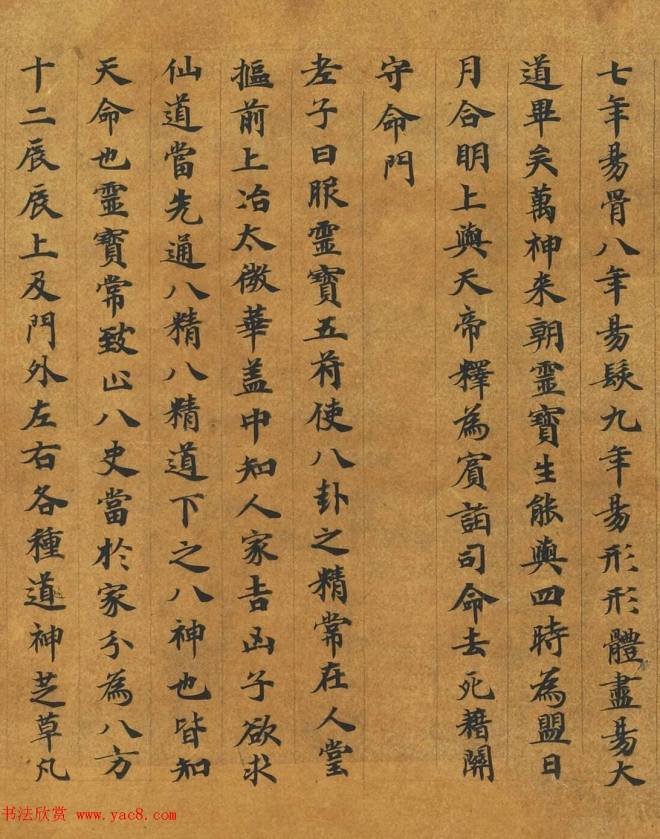 七年易骨八年易髮九年易形形體盡易大
道畢矣萬神来朝靈寶生能與四時為盟日
月合明上與天帝釋為賓詣司命去死籍關
守命門
老子曰服靈寶五符使八卦之精常在人堂
樞前上治太微華盖中知人家吉凶子欲求
仙道當先通八精八精道下之八神也皆知
天命也靈寶常致此八史當於家分為八方
十二辰辰上及門外左右各種道神芝草凡
书法欣赏 www.yac8.com